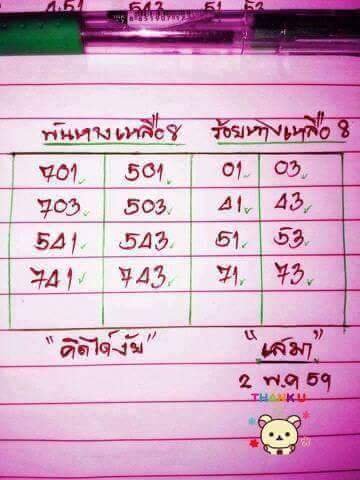 พันทางเหลือ 8 ร้อยทางเหลือ 8
701 501 01 03
703 503 41 43
541 543 51 53
741 743 71 73
"คิดได้งัย" "เสมา"
2 พ.ค 59
THANKU